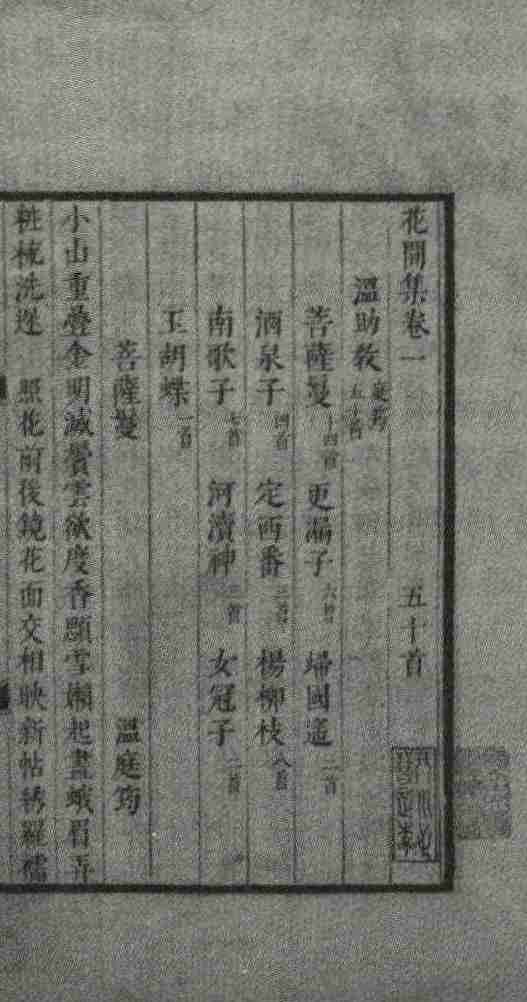 花間集卷一 五十首
溫助敎 庭筠 五十首
菩薩蠻 十四首 更漏子 六首 歸國遙 二首
酒泉子 四首 定西番 三首 楊柳枝 八首
南歌子 七首 河瀆神 三首 女冠子 二首
玉胡蝶 一首
菩薩蠻 溫庭筠
小山重疊金明滅鬢雲欲度香顋雪嬾起畫蛾眉弄
粧梳洗遲 照花前後鏡花面交相映新帖綉羅襦